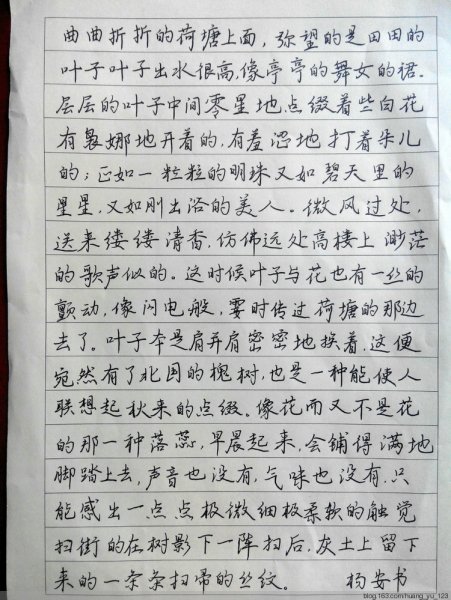 曲曲折折的荷塘上面，弥望的是田田的
叶子叶子出水很高，像亭亭的舞女的裙。
层层的叶子中间零星地点缀着些白花
有袅娜地开着的，有羞涩地打着朵儿
的；正如一粒粒的明珠又如碧天里的
星星，又如刚出浴的美人。微风过处，
送来缕缕清香，仿佛远处高楼上渺茫
的歌声似的。这时候叶子与花也有一丝的
颤动，像闪电般，霎时传过荷塘的那边
去了。叶子本是肩并肩密密地挨着，这便
宛然有了北国的槐树，也是一种能使人
联想起秋来的点缀。像花而又不是花
的那一种落蕊，早晨起来，会铺得满地
脚踏上去，声音也没有，气味也没有，只
能感出一点点极微细极柔软的触觉
扫街的在树影下一阵扫后，灰土上留下
来的一条条扫帚的丝纹。 杨安书
blog.163.com/huang_yu_123